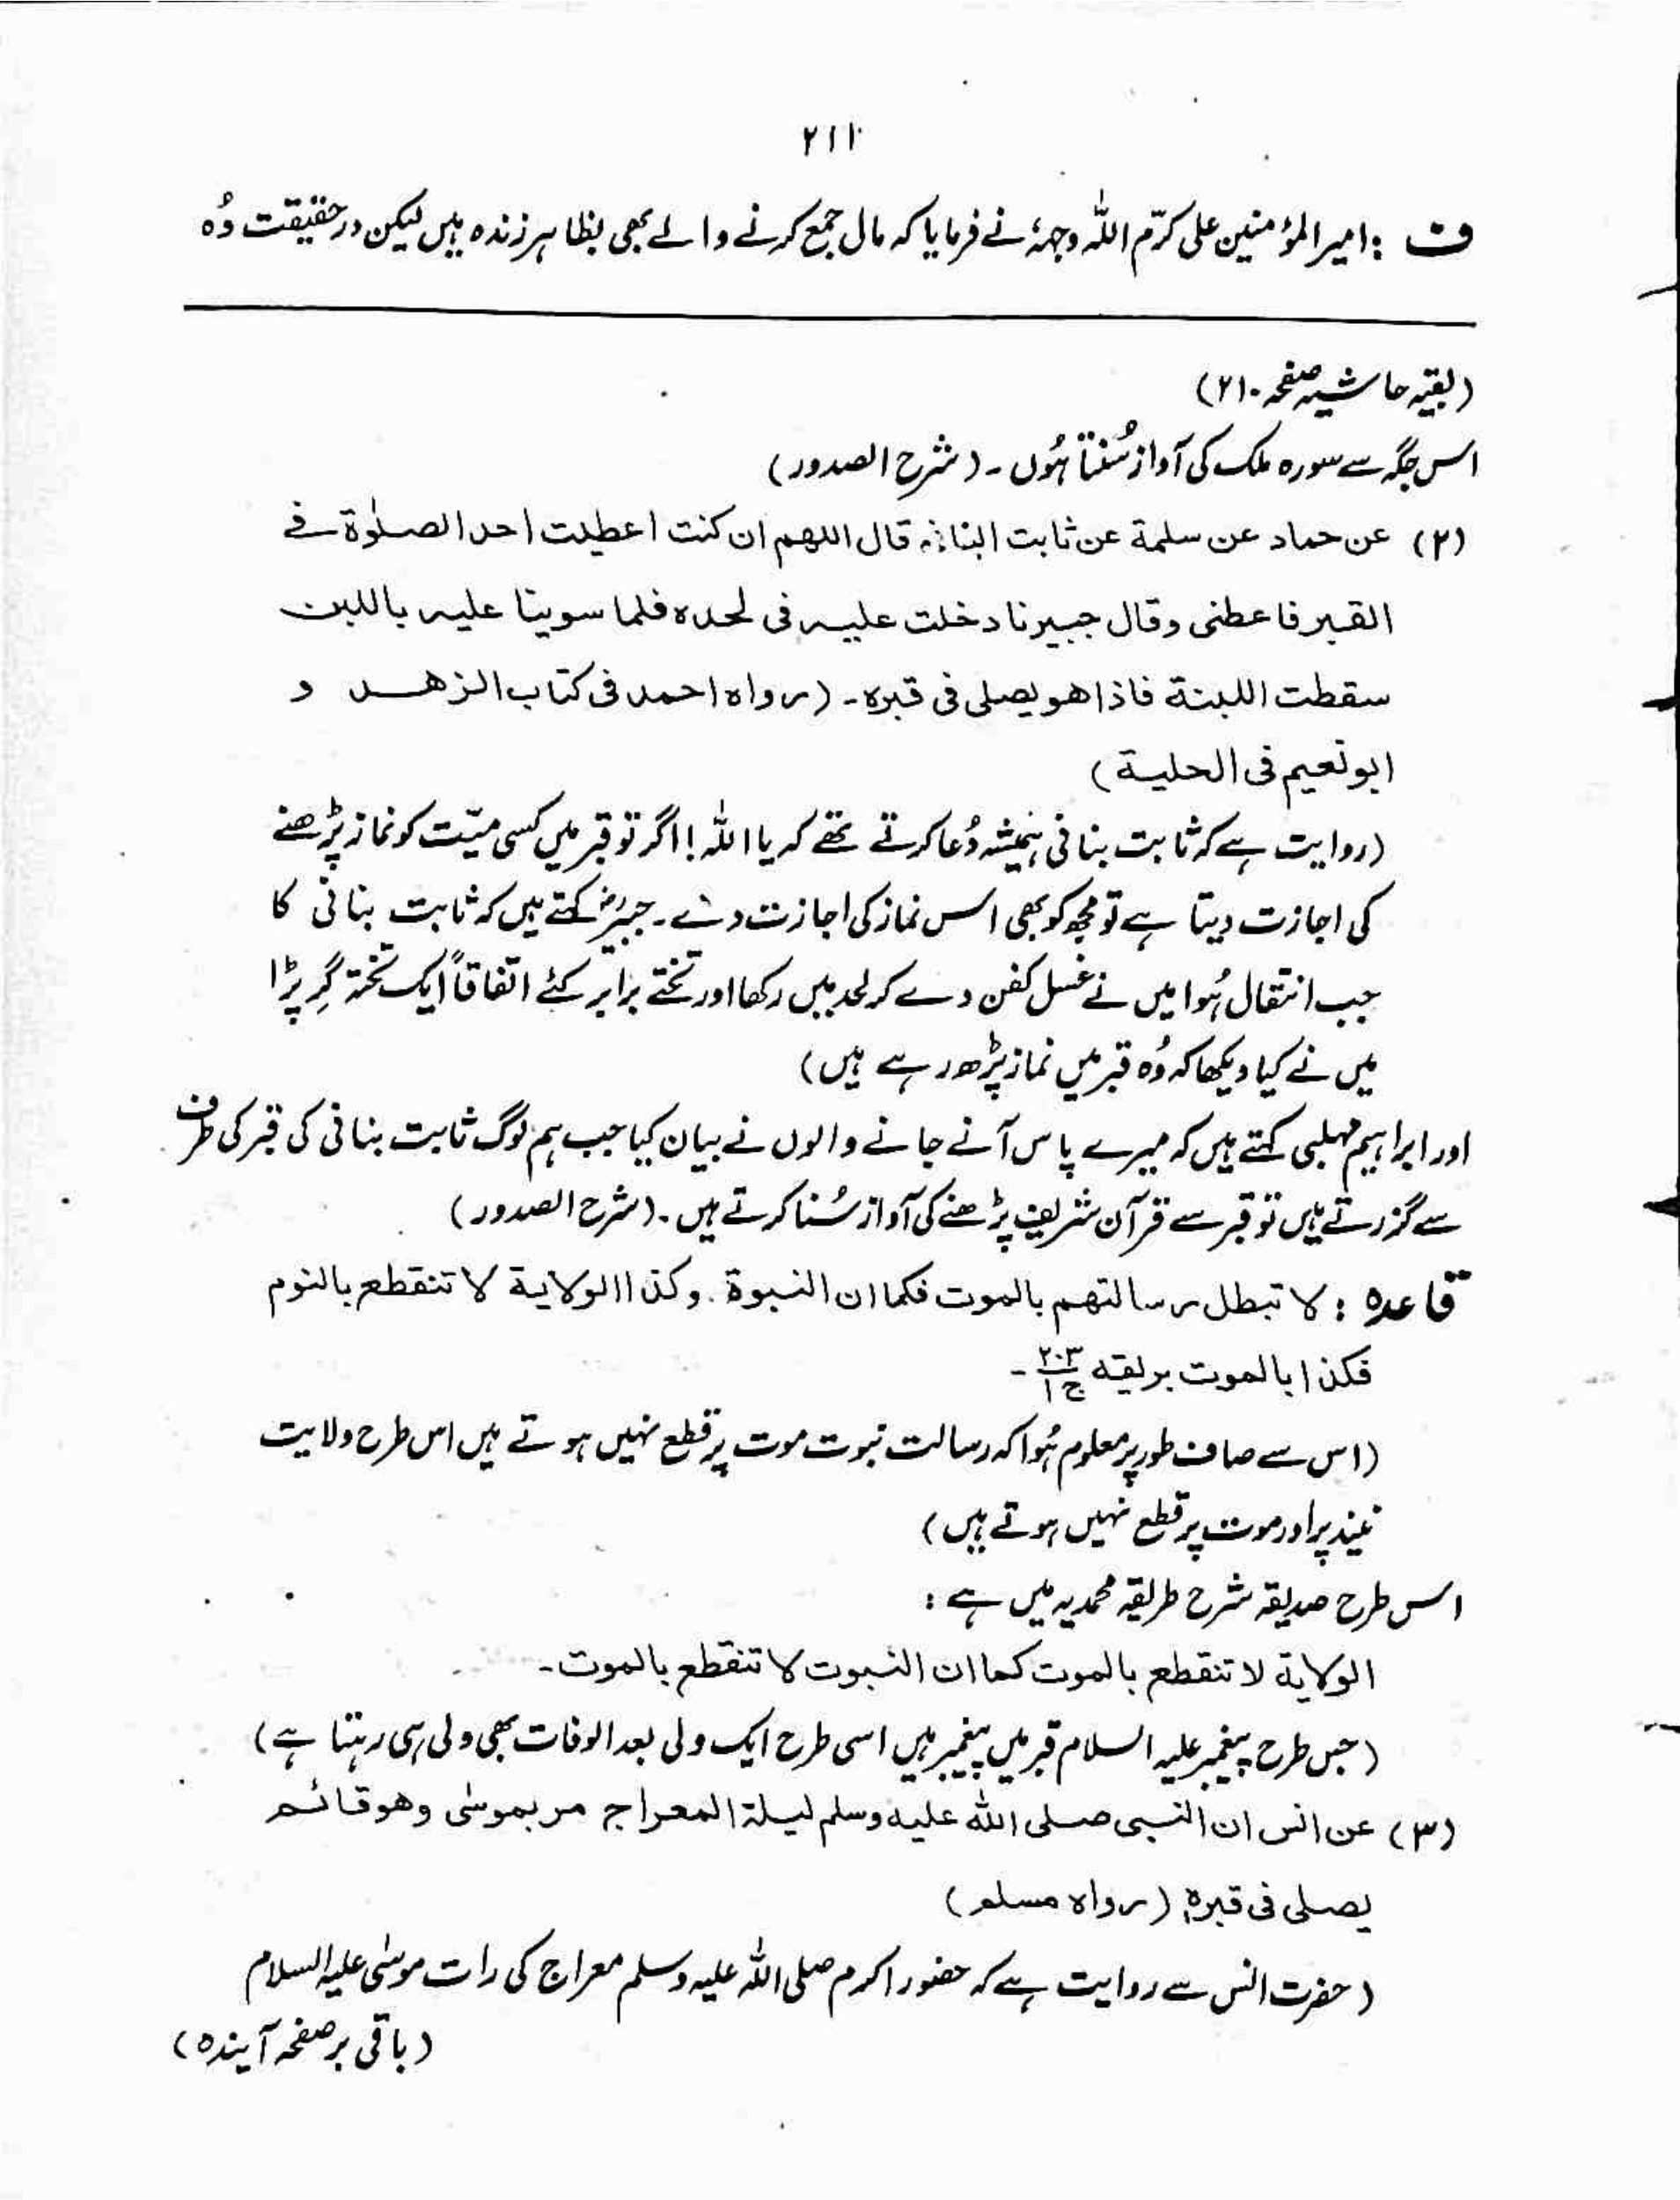 ۲۱۱
ف : امیر المؤمنین علی کرّم اللہ وجہہٗ نے فرمایا کہ مال جمع کرنے والے بھی بظاہر زندہ ہیں لیکن درحقیقت وُہ
(بقیہ حاشیہ صفحہ ۲۱۰)
اس جگہ سے سورہ ملک کی آواز سُنتا ہُوں ۔ (شرح الصدور)
(۲) عن حماد عن سلمة عن ثابت البنانی قال اللهم ان کنت اعطیت احد الصلوٰة فے
القبر فاعطنی وقال جبیر نا دخلت علیه فی لحده فلما سوینا علیه باللبن
سقطت اللبنة فاذا هو یصلی فی قبره ۔ (رواه احمد فی کتاب الزهد و
ابونعیم فی الحلیة)
(روایت ہے کہ ثابت بنانی ہمیشہ دُعا کرتے تھے کہ یا اللہ ! اگر تو قبر میں کسی میّت کو نماز پڑھنے
کی اجازت دیتا ہے تو مجھ کو بھی اس نماز کی اجازت دے ۔ جبیرؓ کہتے ہیں کہ ثابت بنانی کا
جب انتقال ہُوا میں نے غسل کفن دے کر لحد میں رکھا اور تختے برابر کئے اتفاقاً ایک تختہ گر پڑا
میں نے کیا دیکھا کہ وُہ قبر میں نماز پڑھ رہے ہیں)
اور ابراہیم مہلبی کہتے ہیں کہ میرے پاس آنے جانے والوں نے بیان کیا جب ہم لوگ ثابت بنانی کی قبر کی طرف
سے گزرتے ہیں تو قبر سے قرآن شریف پڑھنے کی آواز سُنا کرتے ہیں ۔ (شرح الصدور)
قاعدہ : لا تبطل رسالتهم بالموت فکما ان النبوة . وکذا الولایة لا تنقطع بالنوم
فکذا بالموت بریقه ۲۰۳ ج ۱ ۔
(اس سے صاف طور پر معلوم ہُوا کہ رسالت نبوت موت پر قطع نہیں ہوتے ہیں اس طرح ولایت
نیند پر اور موت پر قطع نہیں ہوتے ہیں)
اس طرح صدیقہ شرح طریقہ محمدیہ میں ہے :
الولایة لا تنقطع بالموت کما ان النبوت لا تنقطع بالموت ۔
(جس طرح پیغمبر علیہ السلام قبر میں پیغمبر ہیں اسی طرح ایک ولی بعد الوفات بھی ولی ہی رہتا ہے)
(۳) عن انس ان النبی صلی الله علیه وسلم لیلة المعراج مر بموسٰی وهو قائم
یصلی فی قبره (رواه مسلم)
(حضرت انس سے روایت ہے کہ حضور اکرم صلی اللہ علیہ وسلم معراج کی رات موسٰی علیہ السلام
(باقی بر صفحہ آیندہ)